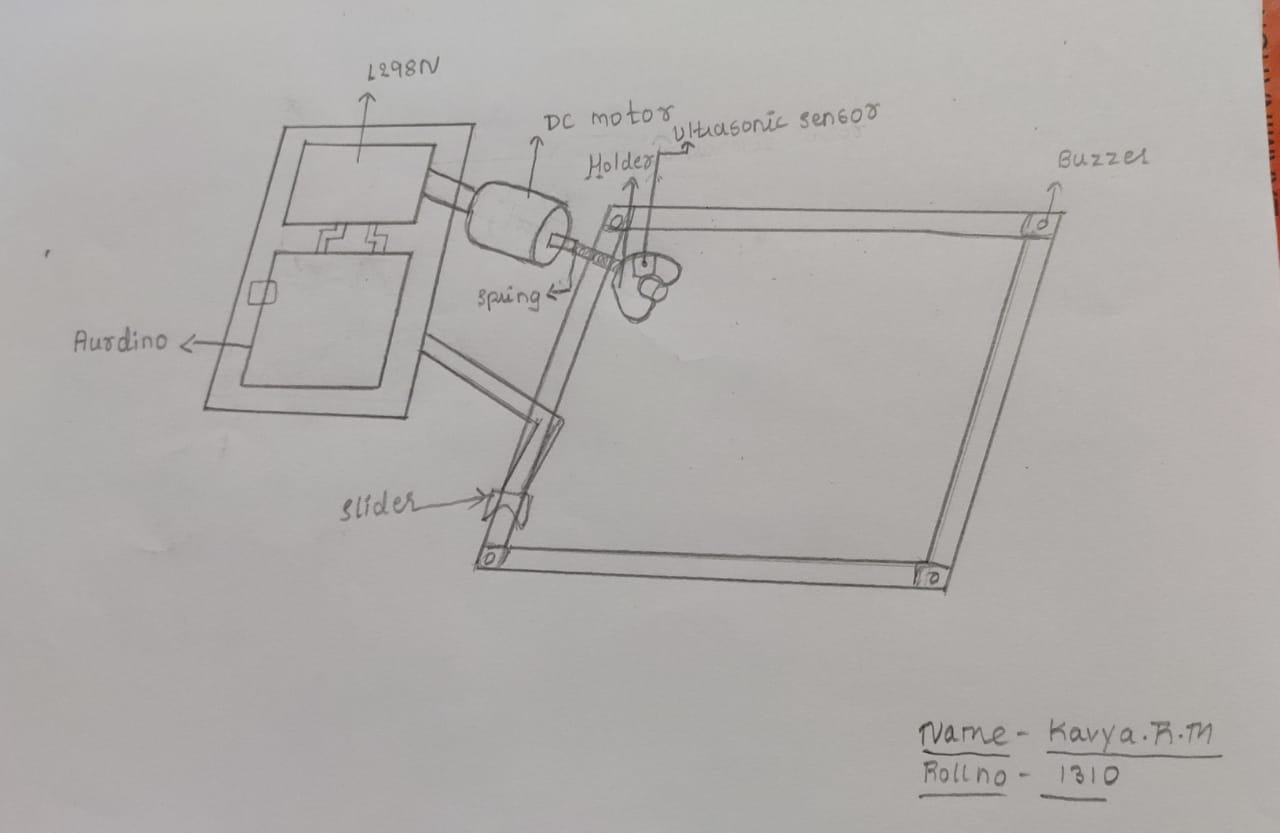 L298N
DC motor
Ultrasonic sensor
Holder
Buzzer
spring
Aurdino
slider
Name - Kavya.R.M
Rollno - 1310